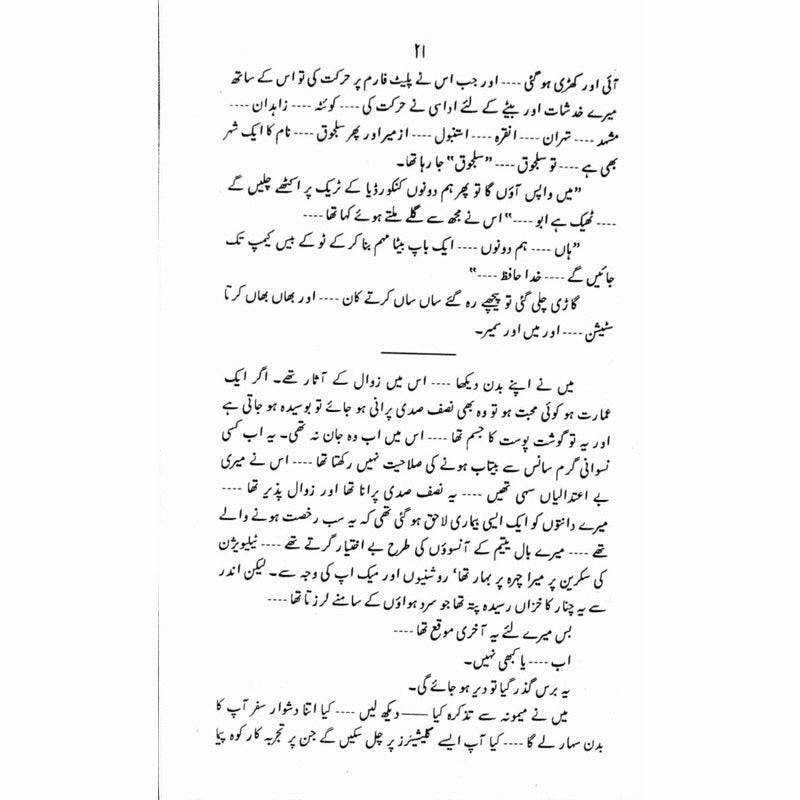 ۲۱
آئی اور کھڑی ہو گئی ---- اور جب اس نے پلیٹ فارم پر حرکت کی تو اس کے ساتھ
میرے خدشات اور بیٹے کے لئے اداسی نے حرکت کی ---- کوئٹہ ---- زاہدان ----
مشہد ---- تہران ---- انقرہ ---- استنبول ---- ازمیر اور پھر سلجوق ---- نام کا ایک شہر
بھی ہے ---- تو سلجوق ---- ”سلجوق“ جا رہا تھا۔
”میں واپس آؤں گا تو پھر ہم دونوں کنکورڈیا کے ٹریک پر اکٹھے چلیں گے
---- ٹھیک ہے ابو ----“ اس نے مجھ سے گلے ملتے ہوئے کہا تھا ----
”ہاں ---- ہم دونوں ---- ایک باپ بیٹا مہم بنا کر کے ٹو کے بیس کیمپ تک
جائیں گے ---- خدا حافظ ----“
گاڑی چلی گئی تو پیچھے رہ گئے ساں ساں کرتے کان ---- اور بھاں بھاں کرتا
سٹیشن ---- اور میں اور سمیر۔
میں نے اپنے بدن دیکھا ---- اس میں زوال کے آثار تھے۔ اگر ایک
عمارت ہو کوئی محبت ہو تو وہ بھی نصف صدی پرانی ہو جائے تو بوسیدہ ہو جاتی ہے
اور یہ تو گوشت پوست کا جسم تھا ---- اس میں اب وہ جان نہ تھی۔ یہ اب کسی
نسوانی گرم سانس سے بیتاب ہونے کی صلاحیت نہیں رکھتا تھا ---- اس نے میری
بے اعتدالیاں سہی تھیں ---- یہ نصف صدی پرانا تھا اور زوال پذیر تھا ----
میرے دانتوں کو ایک ایسی بیماری لاحق ہو گئی تھی کہ یہ سب رخصت ہونے والے
تھے ---- میرے بال یتیم کے آنسوؤں کی طرح بے اختیار گرتے تھے ---- ٹیلیویژن
کی سکرین پر میرا چہرہ پر بہار تھا‘ روشنیوں اور میک اپ کی وجہ سے۔ لیکن اندر
سے یہ چنار کا خزاں رسیدہ پتہ تھا جو سرد ہواؤں کے سامنے لرزتا تھا ----
بس میرے لئے یہ آخری موقع تھا ----
اب ---- یا کبھی نہیں۔
یہ برس گذر گیا تو دیر ہو جائے گی۔
میں نے میمونہ سے تذکرہ کیا —— دیکھ لیں ---- کیا اتنا دشوار سفر آپ کا
بدن سہار لے گا ---- کیا آپ ایسے گلیشیئرز پر چل سکیں گے جن پر تجربہ کار کوہ پیما